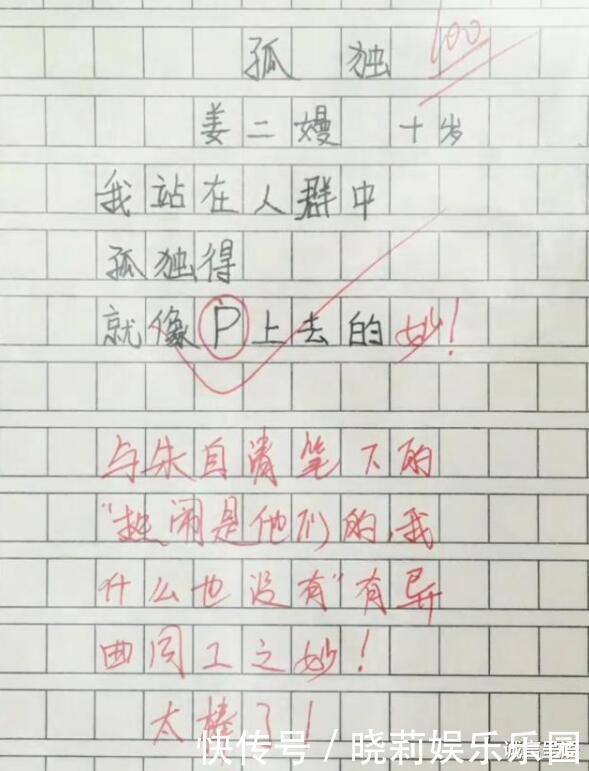 孤独 100
姜二嫚 十岁
我站在人群中
孤独得
就像P上去的 妙！
与朱自清笔下的
“热闹是他们的,我
什么也没有”有异
曲同工之妙！
太棒了！
快传号／晓莉娱乐乐园